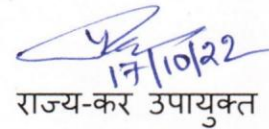 17/10/22
राज्य-कर उपायुक्त